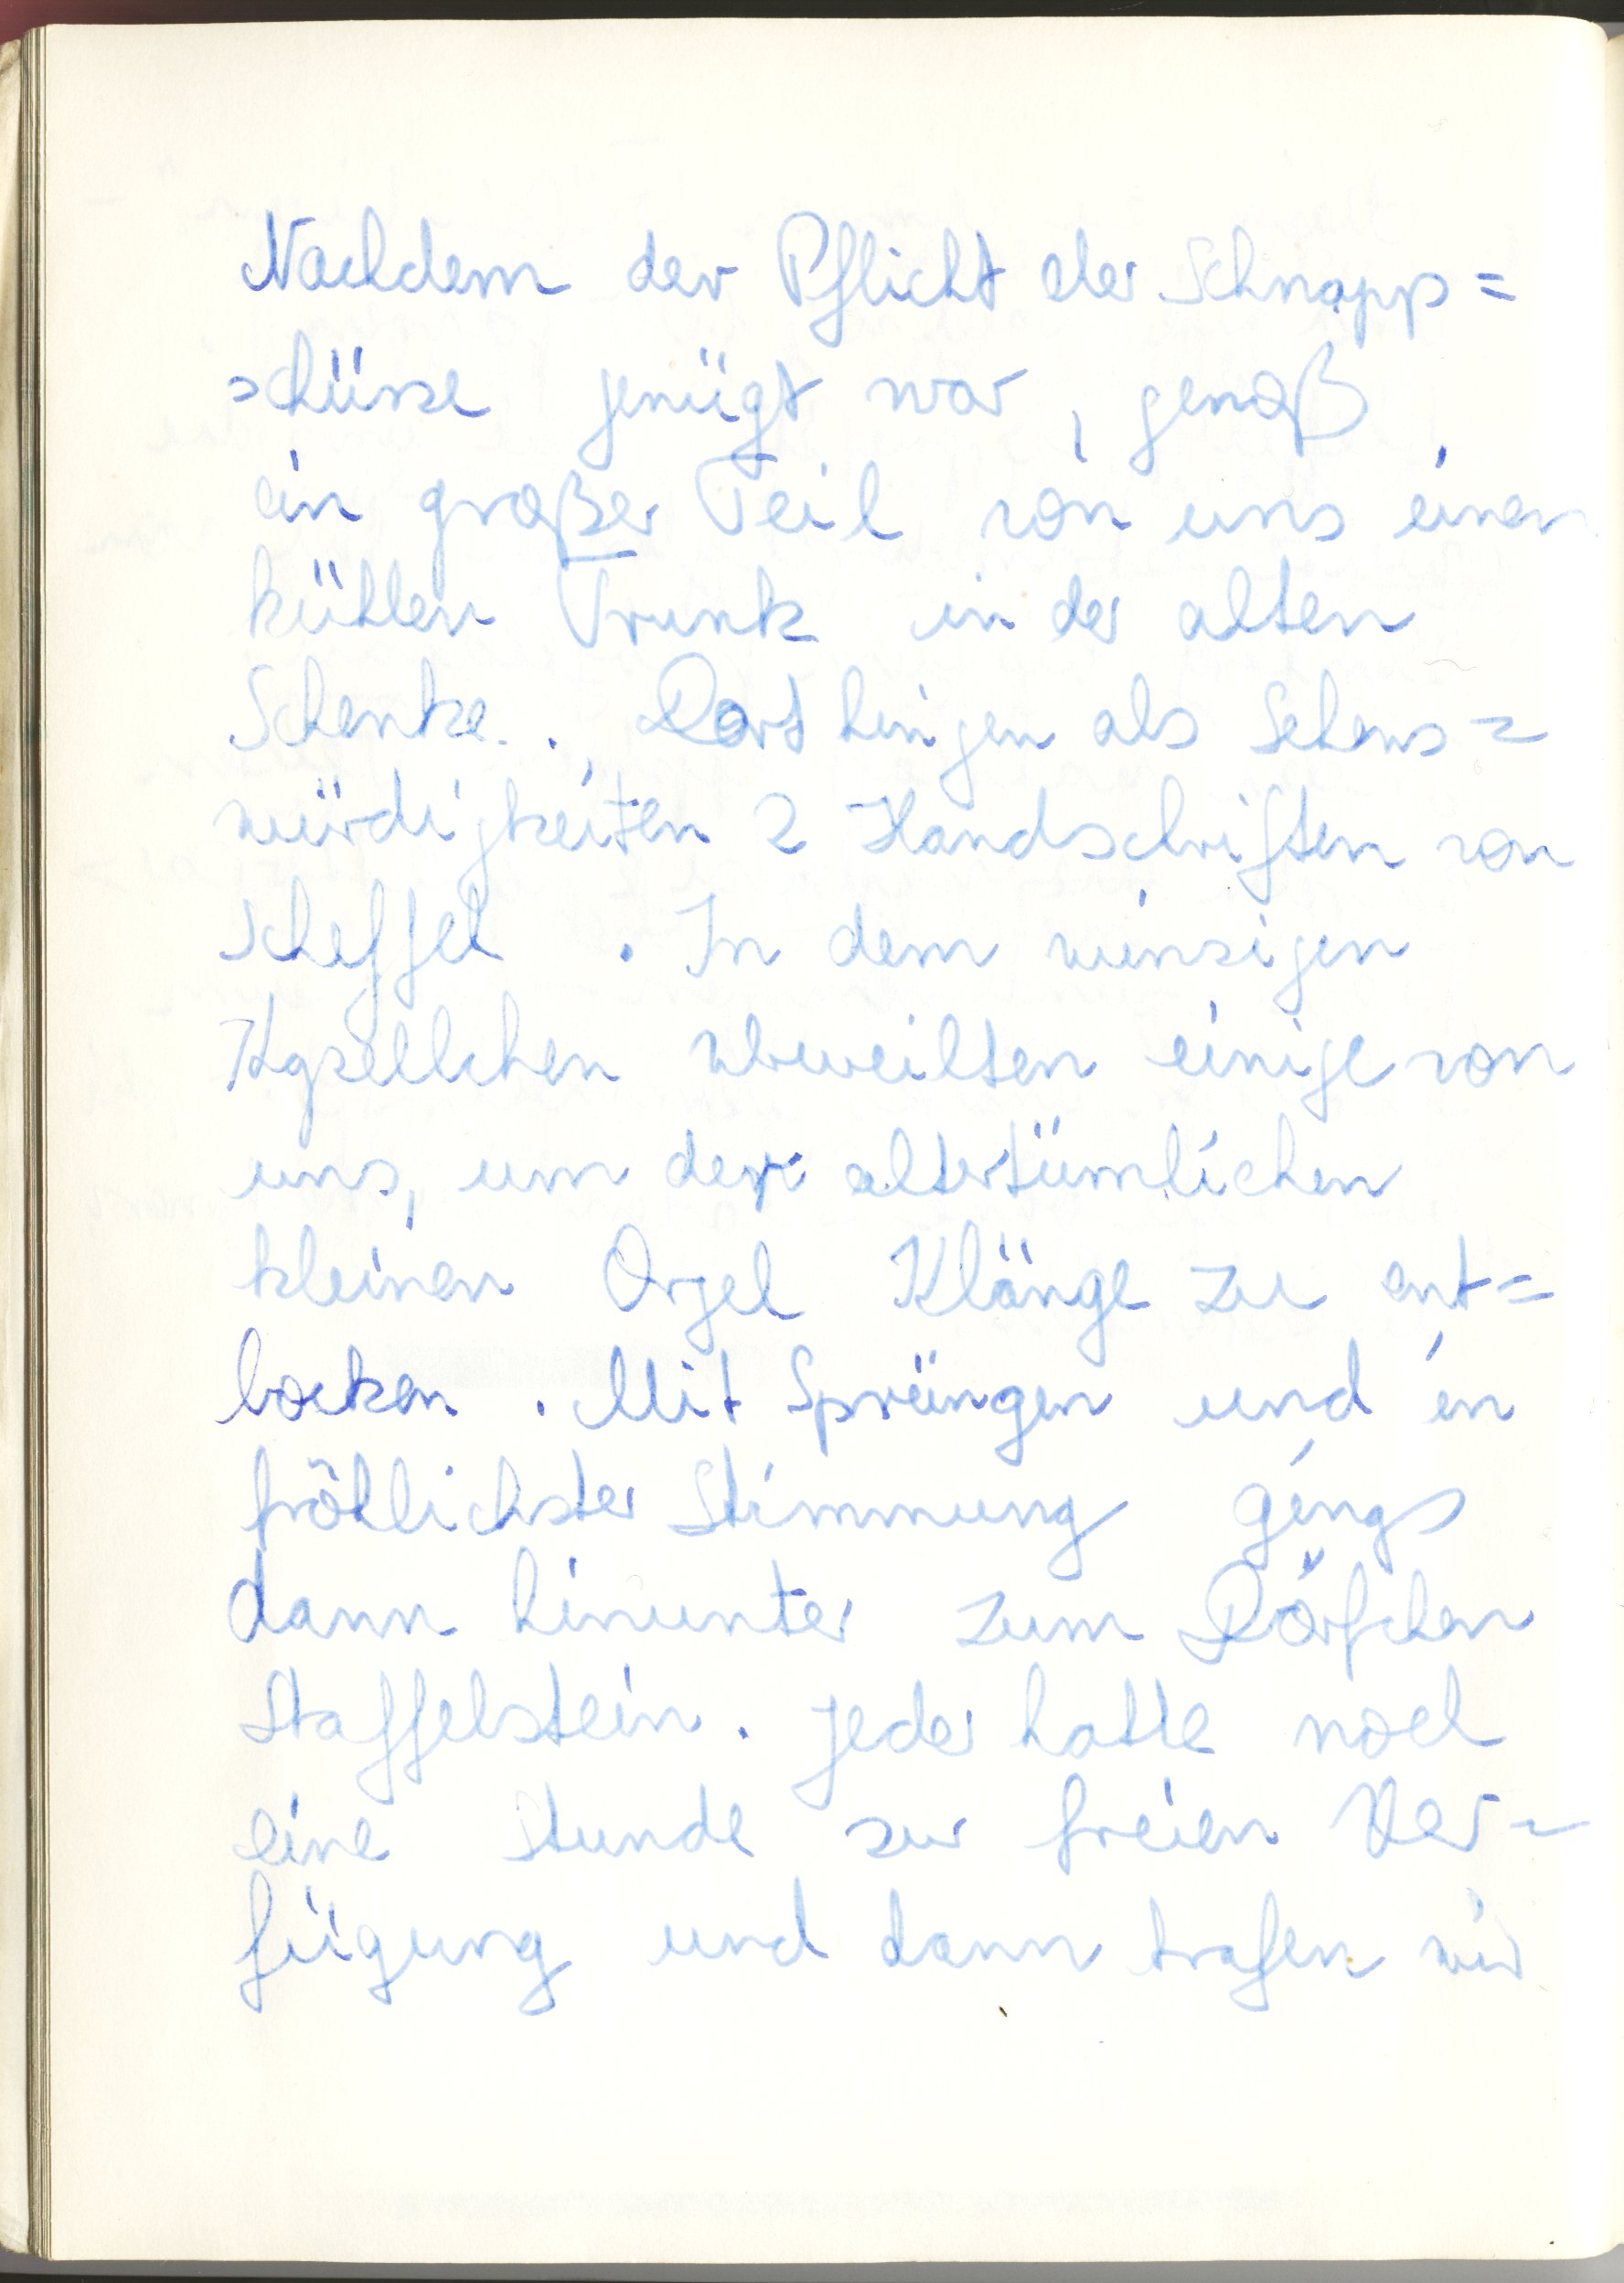 Nachdem der Pflicht der Schnapp=
schüsse genügt war, genoß
ein großer Teil von uns einen
kühlen Trunk in der alten
Schenke. Dort hingen als Sehens=
würdigkeiten 2 Handschriften von
Scheffel. In dem winzigen
Kapellchen verweilten einige von
uns, um der altertümlichen
kleinen Orgel Klänge zu ent=
locken. Mit Sprüngen und in
fröhlichster Stimmung gings
dann hinunter zum Dörfchen
Staffelstein. Jeder hatte noch
eine Stunde zur freien Ver=
fügung und dann trafen wir